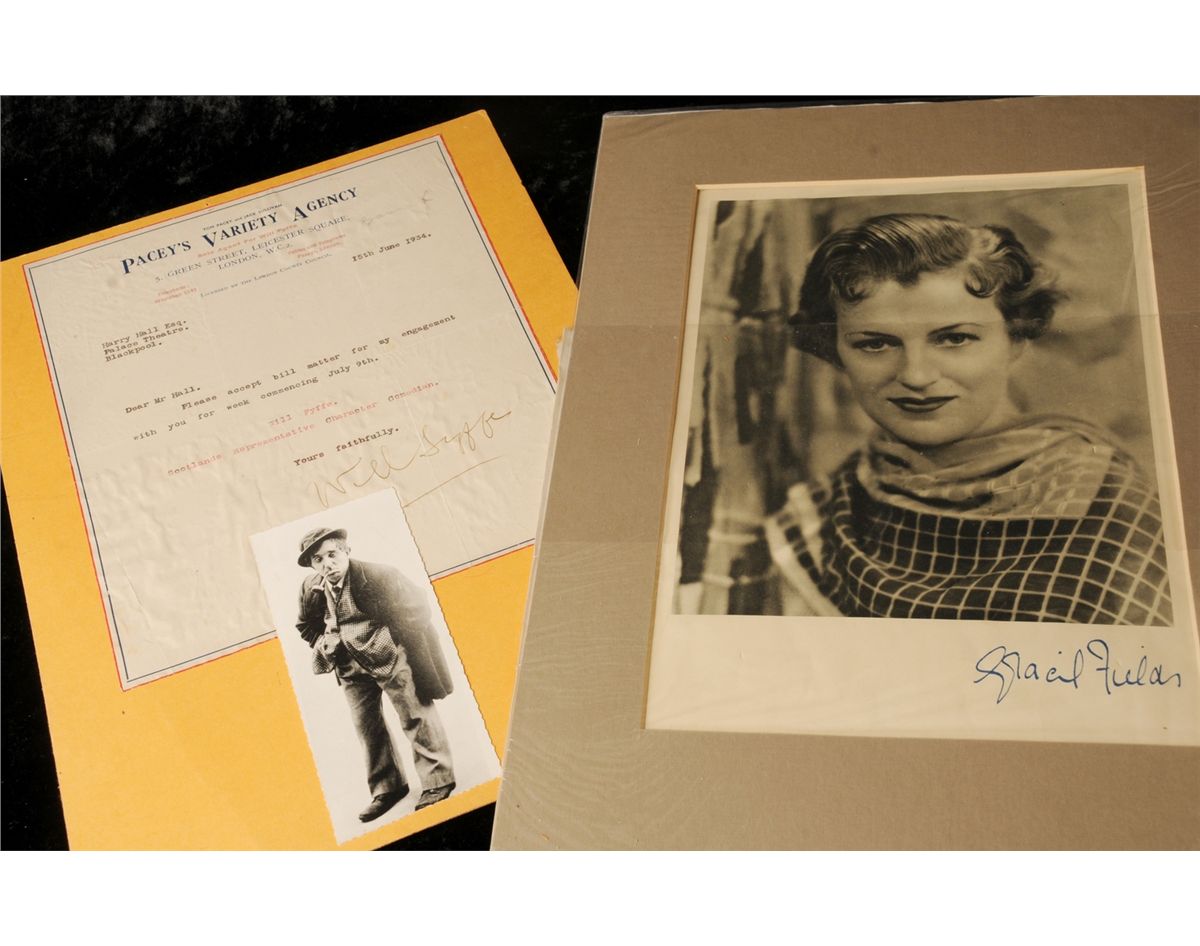 TOM PACEY AND JACK SULLIVAN
PACEY'S VARIETY AGENCY
Sole Agent For Will Fyffe
5, GREEN STREET, LEICESTER SQUARE,
LONDON, W.C.2.
LICENSED BY THE LONDON COUNTY COUNCIL
15th June 1934.
Harry Hall Esq.
Palace Theatre.
Blackpool.
Dear Mr Hall.
Please accept bill matter for my engagement
with you for week commencing July 9th.
Will Fyffe.
Scotlands Representative Character Comedian.
Yours faithfully.
Will Fyffe
Gracie Fields